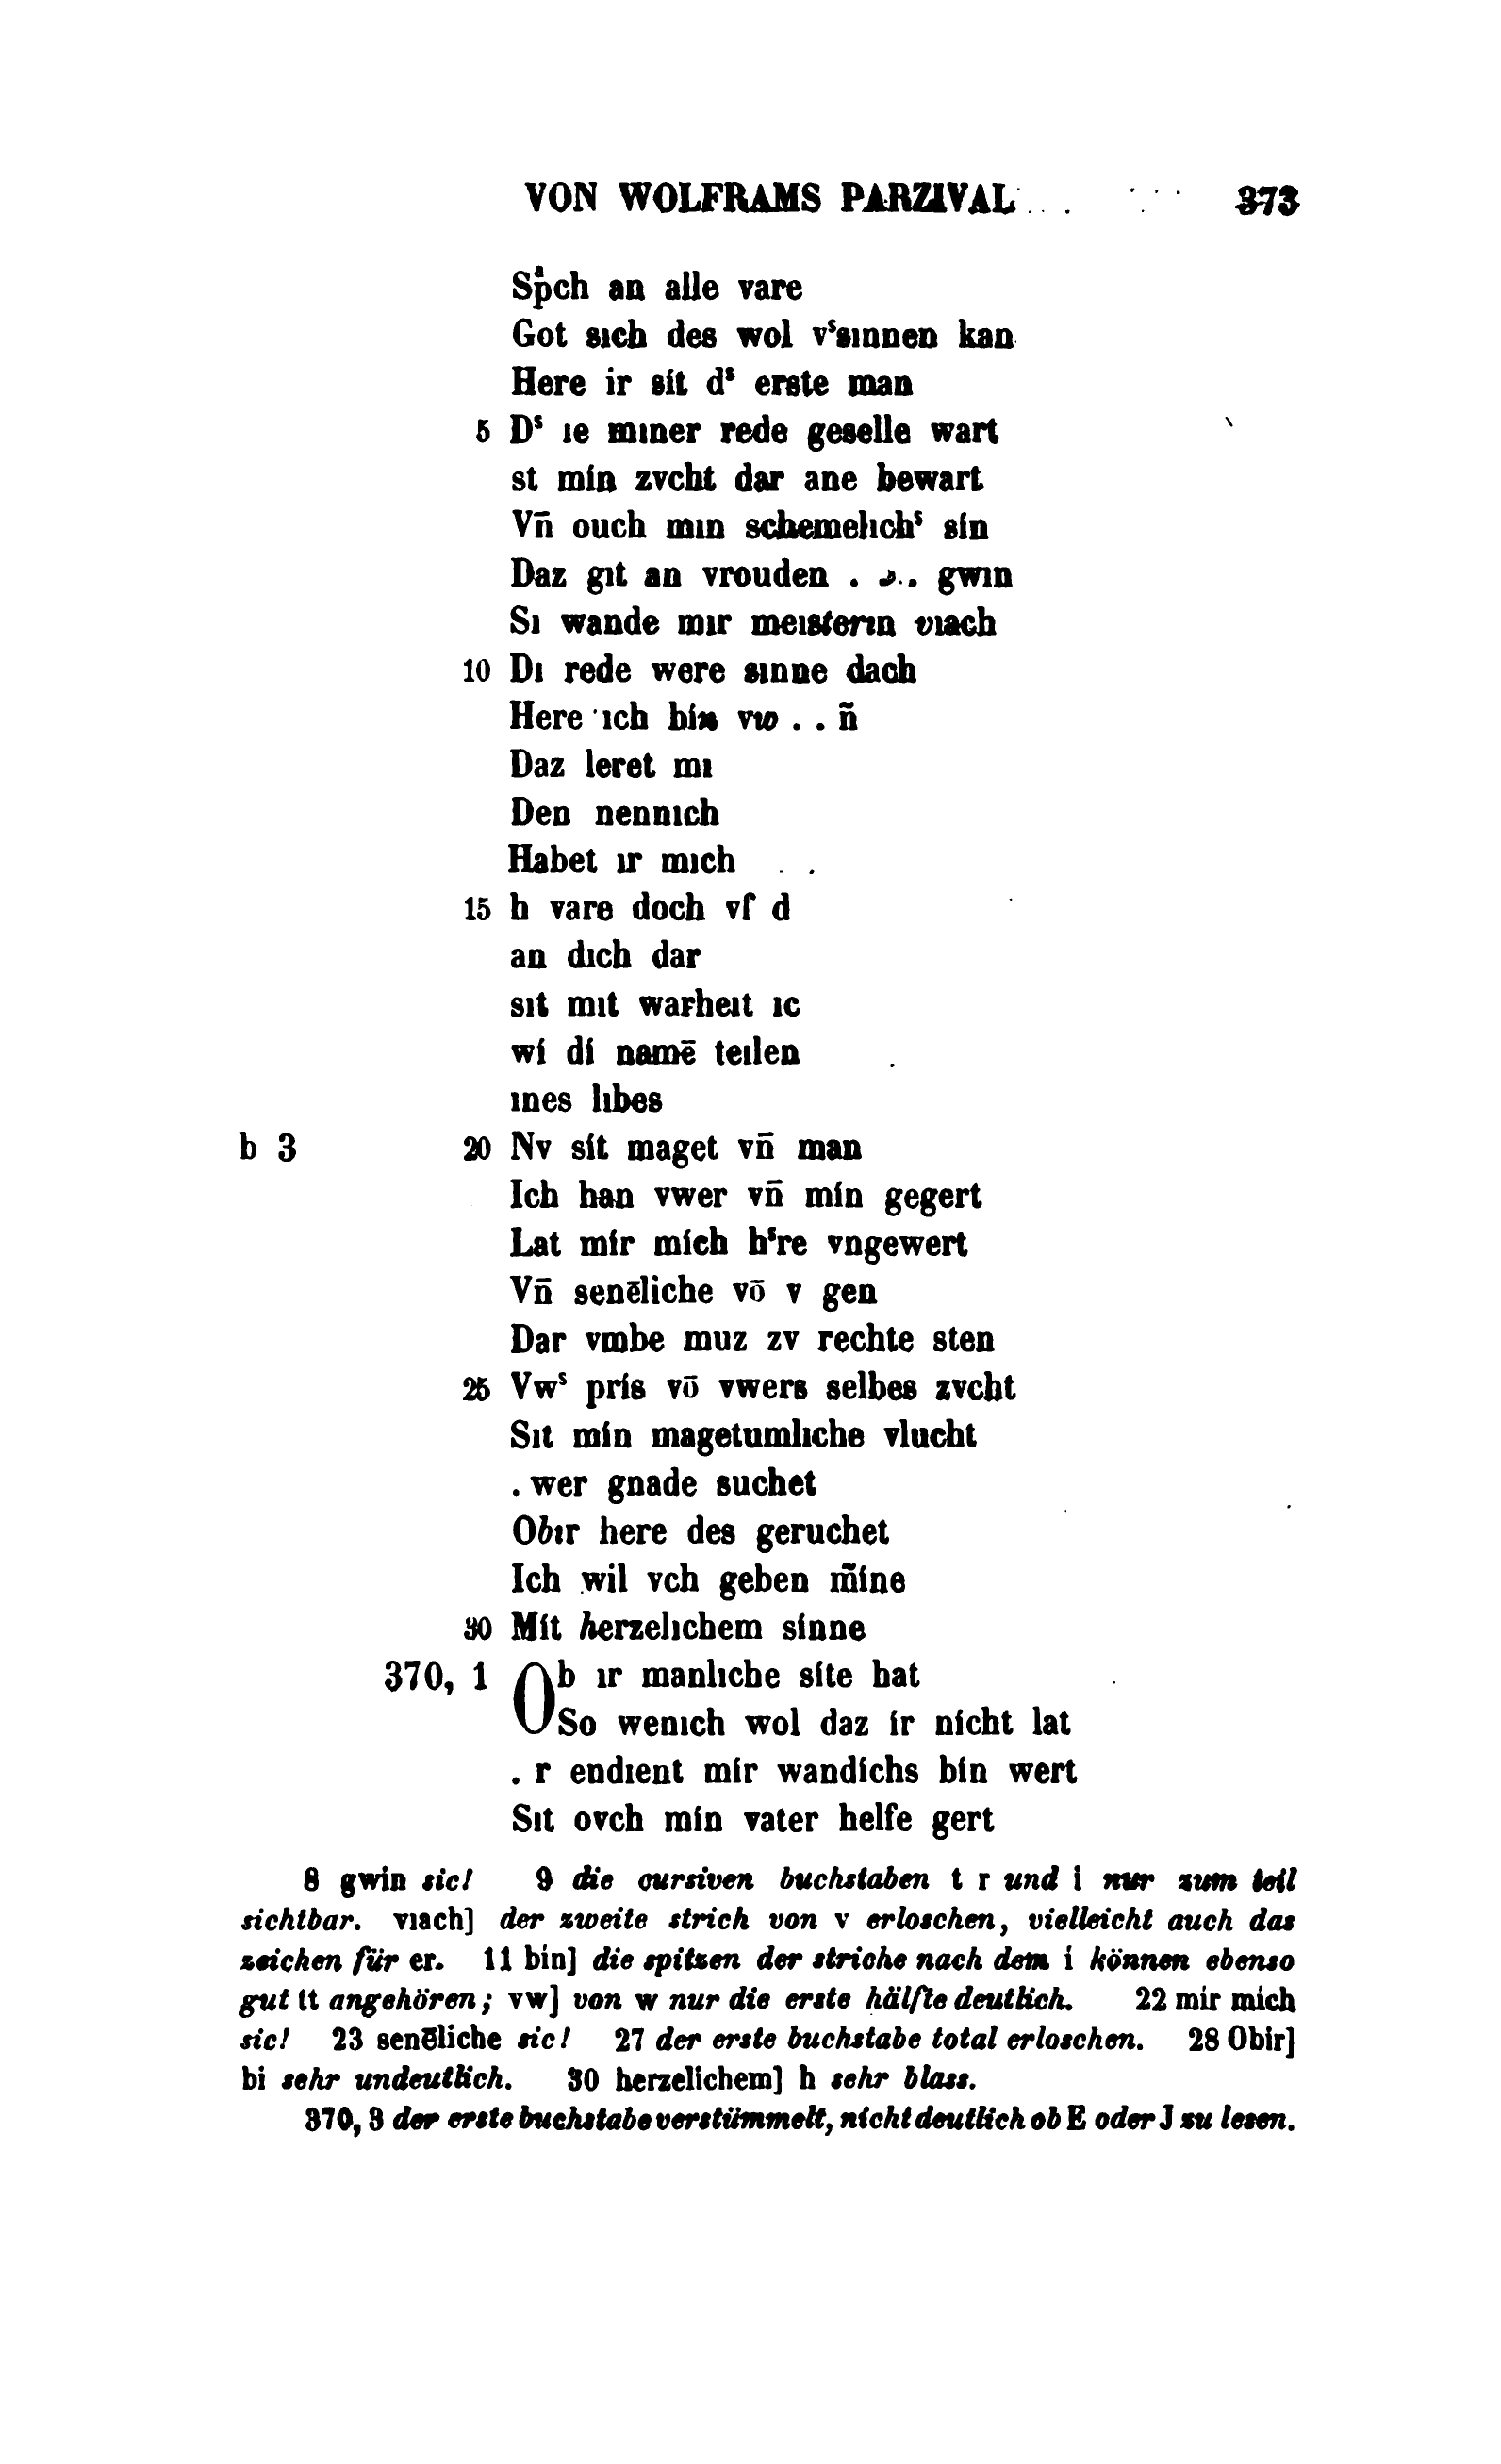 VON WOLFRAMS PARZIVAL 373
Spͣch an alle vare
Got sıch des wol vˢsınnen kan
Here ir sít dˢ erste man
5 Dˢ ıe mıner rede geselle wart
st mín zvcht dar ane bewart
Vn̄ ouch mın schemelıchˢ sín
Daz gıt an vrouden . . . gwın
Sı wande mır meısterın vıach
10 Dı rede were sınne dach
Here ıch bín vw . . ñ
Daz leret mı
Den nennıch
Habet ır mıch
15 h vare doch vſ d
an dıch dar
sıt mıt warheıt ıc
wí dí namē teılen
ınes lıbes
b 3 20 Nv sít maget vn̄ man
Ich han vwer vn̄ mín gegert
Lat mír mích hˢre vngewert
Vn̄ senēliche vō v gen
Dar vmbe muz zv rechte sten
25 Vwˢ prís vō vwers selbes zvcht
Sıt mín magetumlıche vlucht
. wer gnade suchet
Obır here des geruchet
Ich wil vch geben m̃íne
30 Mít herzelıchem sínne
370, 1 Ob ır manlıche síte hat
So wenıch wol daz ír nícht lat
. r endıent mír wandíchs bín wert
Sıt ovch mín vater helfe gert
8 gwin sic! 9 die cursiven buchstaben t r und i nur zum teil
sichtbar. vıach] der zweite strich von v erloschen, vielleicht auch das
zeichen für er. 11 bin] die spitzen der striche nach dem i können ebenso
gut tt angehören; vw] von w nur die erste hälfte deutlich. 22 mir mich
sic! 23 senēliche sic! 27 der erste buchstabe total erloschen. 28 Obir]
bi sehr undeutlich. 30 herzelichem] h sehr blass.
370, 3 der erste buchstabe verstümmelt, nicht deutlich ob E oder J zu lesen.